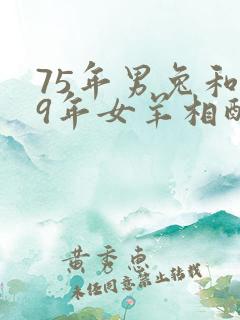 75年男兔和
9年女羊相配
黄秀惠
未经同意禁止转载